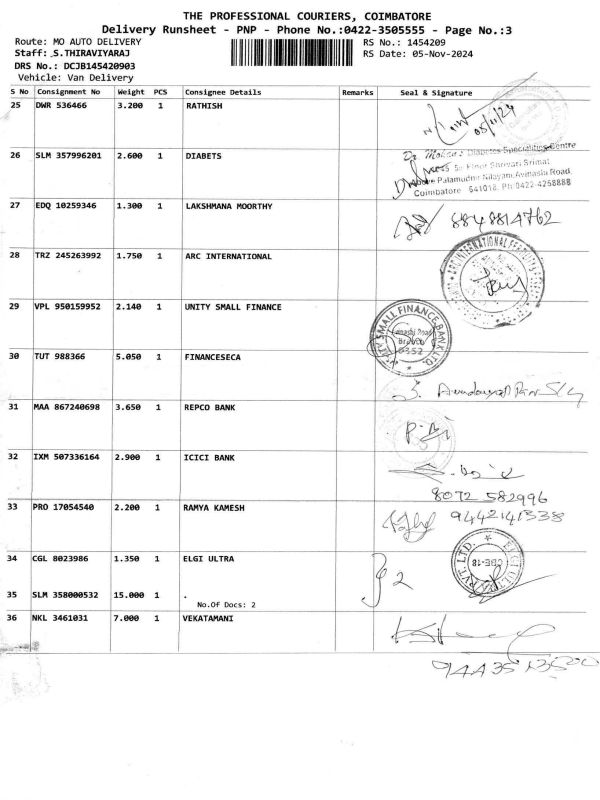 THE PROFESSIONAL COURIERS, COIMBATORE
Delivery Runsheet - PNP - Phone No.:0422-3505555 - Page No.:3
Route: MO AUTO DELIVERY RS No.: 1454209
Staff: .S.THIRAVIYARAJ RS Date: 05-Nov-2024
DRS No.: DCJB145420903
Vehicle: Van Delivery
S No Consignment No Weight PCS Consignee Details Remarks Seal & Signature
25 DWR 536466 3.200 1 RATHISH
05/11/24
26 SLM 357996201 2.600 1 DIABETS
Dr. Mohan's Diabetes Specialities Centre
Palamudhir Nilayam, Avinashi Road,
Coimbatore 641018. Ph 0422-4268888
27 EDQ 10259346 1.300 1 LAKSHMANA MOORTHY
8848814762
28 TRZ 245263992 1.750 1 ARC INTERNATIONAL
ARC INTERNATIONAL
29 VPL 950159952 2.140 1 UNITY SMALL FINANCE
SMALL FINANCE BANK LTD.
Avinashi Road
Branch
0352
30 TUT 988366 5.050 1 FINANCESECA
31 MAA 867240698 3.650 1 REPCO BANK
32 IXM 507336164 2.900 1 ICICI BANK
8072 582996
33 PRO 17054540 2.200 1 RAMYA KAMESH
9442141338
34 CGL 8023986 1.350 1 ELGI ULTRA
ELGI ULTRA PVT. LTD.
CBE-18
2
35 SLM 358000532 15.000 1 .
No.Of Docs: 2
36 NKL 3461031 7.000 1 VEKATAMANI